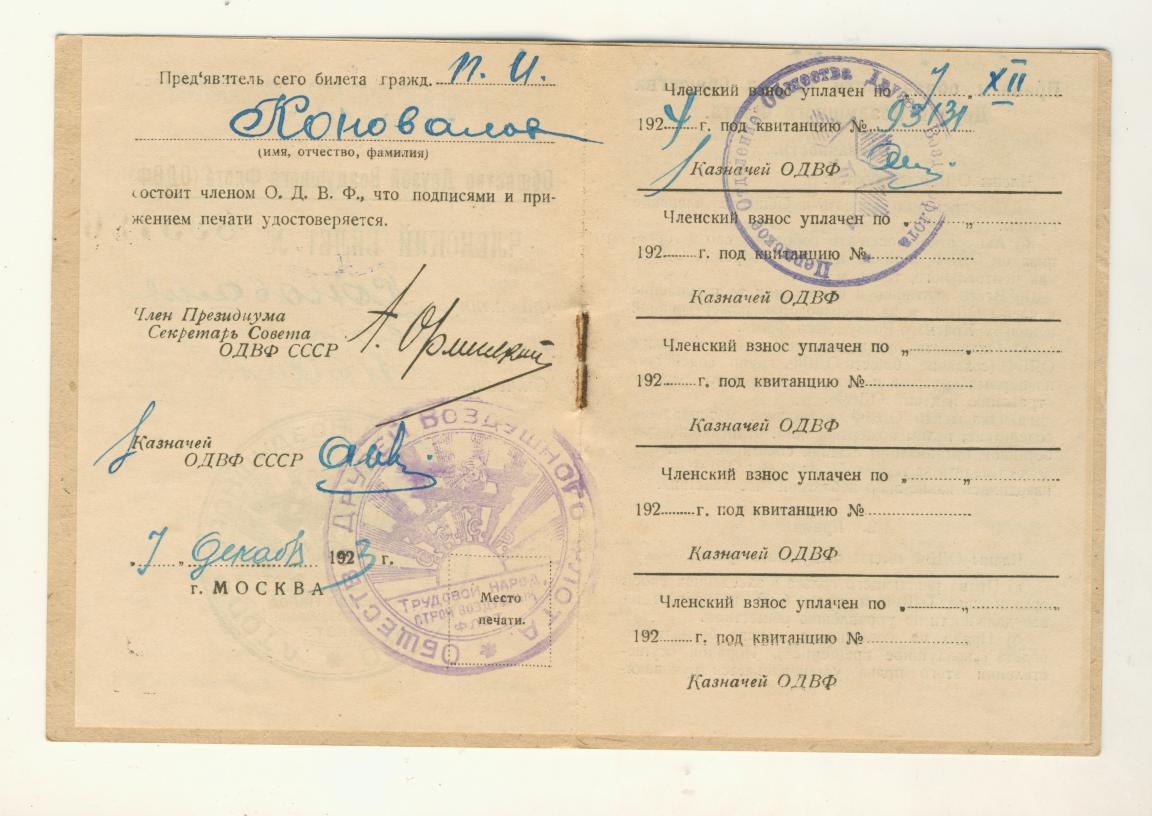 Пред'явитель сего билета гражд. П. И.
Коновалов
(имя, отчество, фамилия)
состоит членом О. Д. В. Ф., что подписями и при-
жением печати удостоверяется.
Член Президиума
Секретарь Совета
ОДВФ СССР
Казначей
ОДВФ СССР
„7„ декабр 1923 г.
г. МОСКВА
Место
печати.
ОБЩЕСТВО ДРУЗЕЙ ВОЗДУШНОГО ФЛОТА
ТРУДОВОЙ НАРОД,
СТРОЙ ВОЗДУШНЫЙ
ФЛОТ
Членский взнос уплачен по „7„ XII
1924 г. под квитанцию № 93131
Казначей ОДВФ
Отделение Общества Друзей Возд. Флота
Членский взнос уплачен по „ „
192 г. под квитанцию №
Казначей ОДВФ
Членский взнос уплачен по „ „
192 г. под квитанцию №
Казначей ОДВФ
Членский взнос уплачен по „ „
192 г. под квитанцию №
Казначей ОДВФ
Членский взнос уплачен по „ „
192 г. под квитанцию №
Казначей ОДВФ